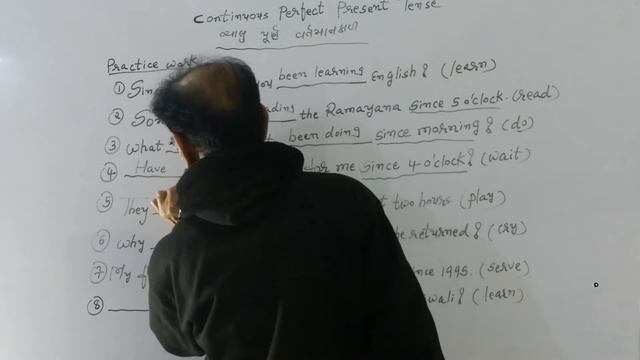 Continuous Perfect Present Tense
ચાલુ પૂર્ણ વર્તમાનકાળ
Practice work
① Sin you been learning English? (learn)
② So ading the Ramayana since 5 o'clock. (read)
③ what been doing since morning? (do)
④ Have for me since 4 o'clock? (wait)
⑤ They two hours (play)
⑥ why he returned? (cry)
⑦ My f since 1995. (serve)
⑧ wali? (learn)